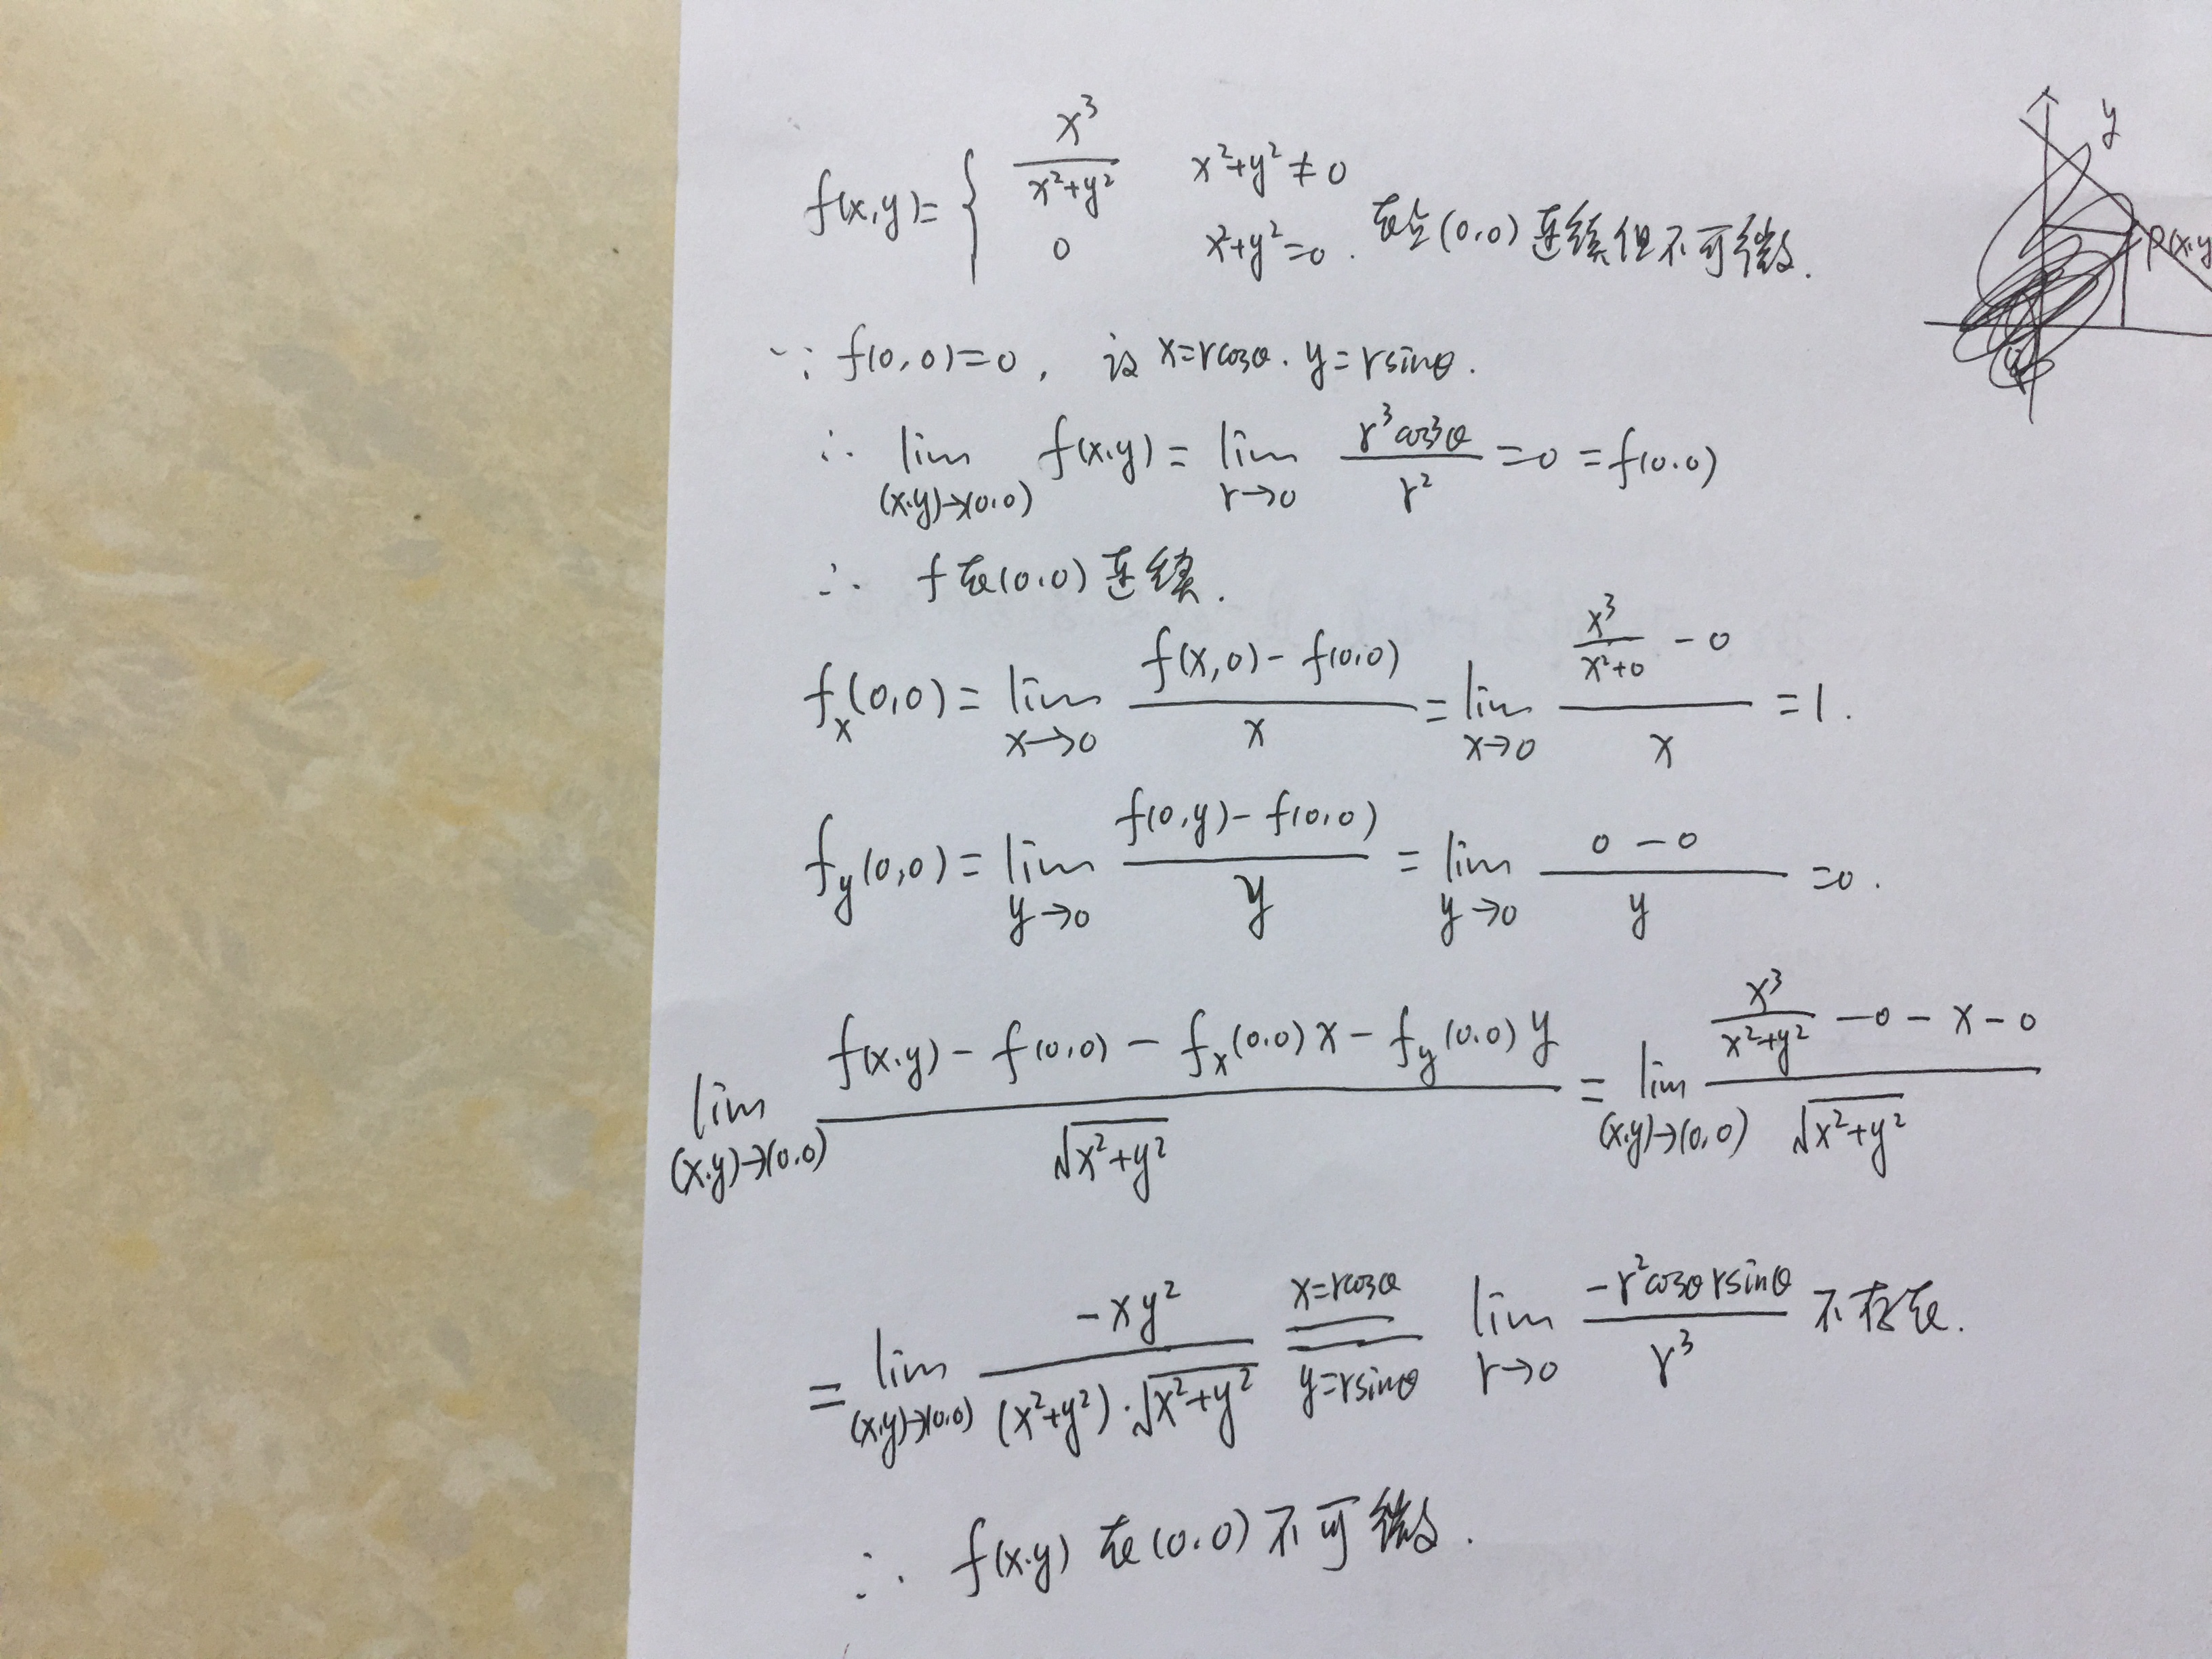 f(x,y)= { x³/(x²+y²) x²+y²≠0
0 x²+y²=0. 在点(0,0)连续但不可微.
y
P(x,y
∵ f(0,0)=0, 设 x=rcosθ. y=rsinθ.
∴ lim (x,y)→(0,0) f(x,y) = lim r→0 r³cos³θ/r² =0 =f(0,0)
∴ f在(0,0)连续.
f_x(0,0) = lim x→0 (f(x,0)-f(0,0))/x = lim x→0 (x³/(x²+0) -0)/x =1.
f_y(0,0) = lim y→0 (f(0,y)-f(0,0))/y = lim y→0 (0-0)/y =0.
lim (x,y)→(0,0) (f(x,y)-f(0,0)-f_x(0,0)x-f_y(0,0)y)/√(x²+y²) = lim (x,y)→(0,0) (x³/(x²+y²) -0-x-0)/√(x²+y²)
= lim (x,y)→(0,0) -xy²/((x²+y²)·√(x²+y²)) x=rcosθ == y=rsinθ lim r→0 -r²cosθrsinθ/r³ 不存在.
∴ f(x,y) 在(0,0)不可微.